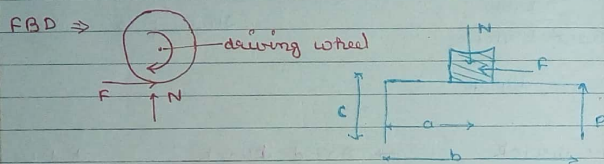 FBD ⇒
driving wheel
F
N
N
F
C
a
b